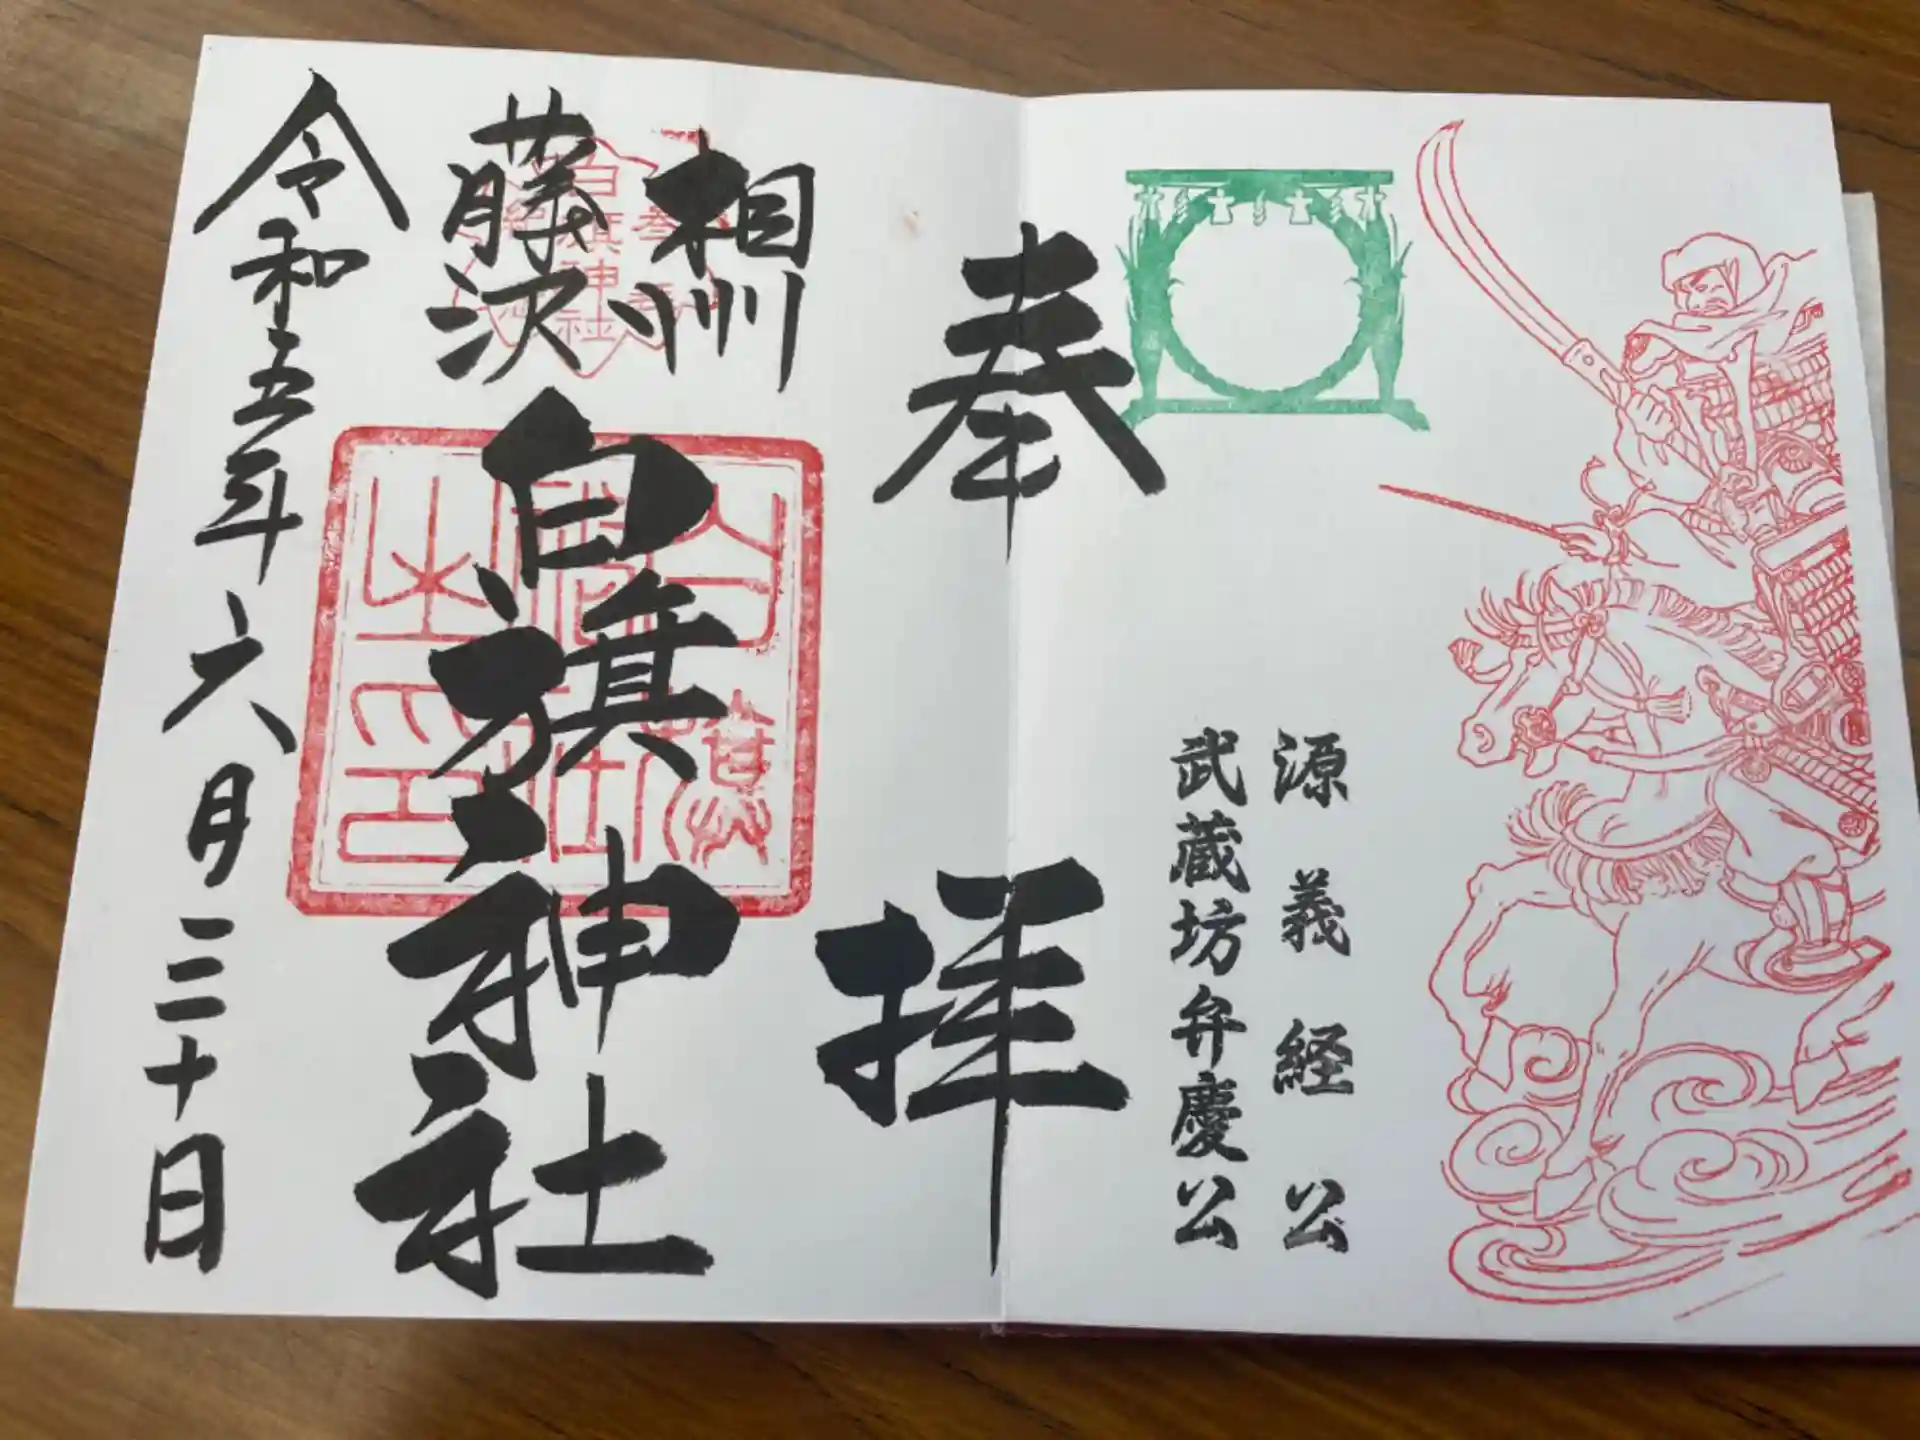 源義経公
武蔵坊弁慶公
奉拝
相州
藤沢
白旗神社
白旗神社
白旗神社之印
令和五年六月三十日